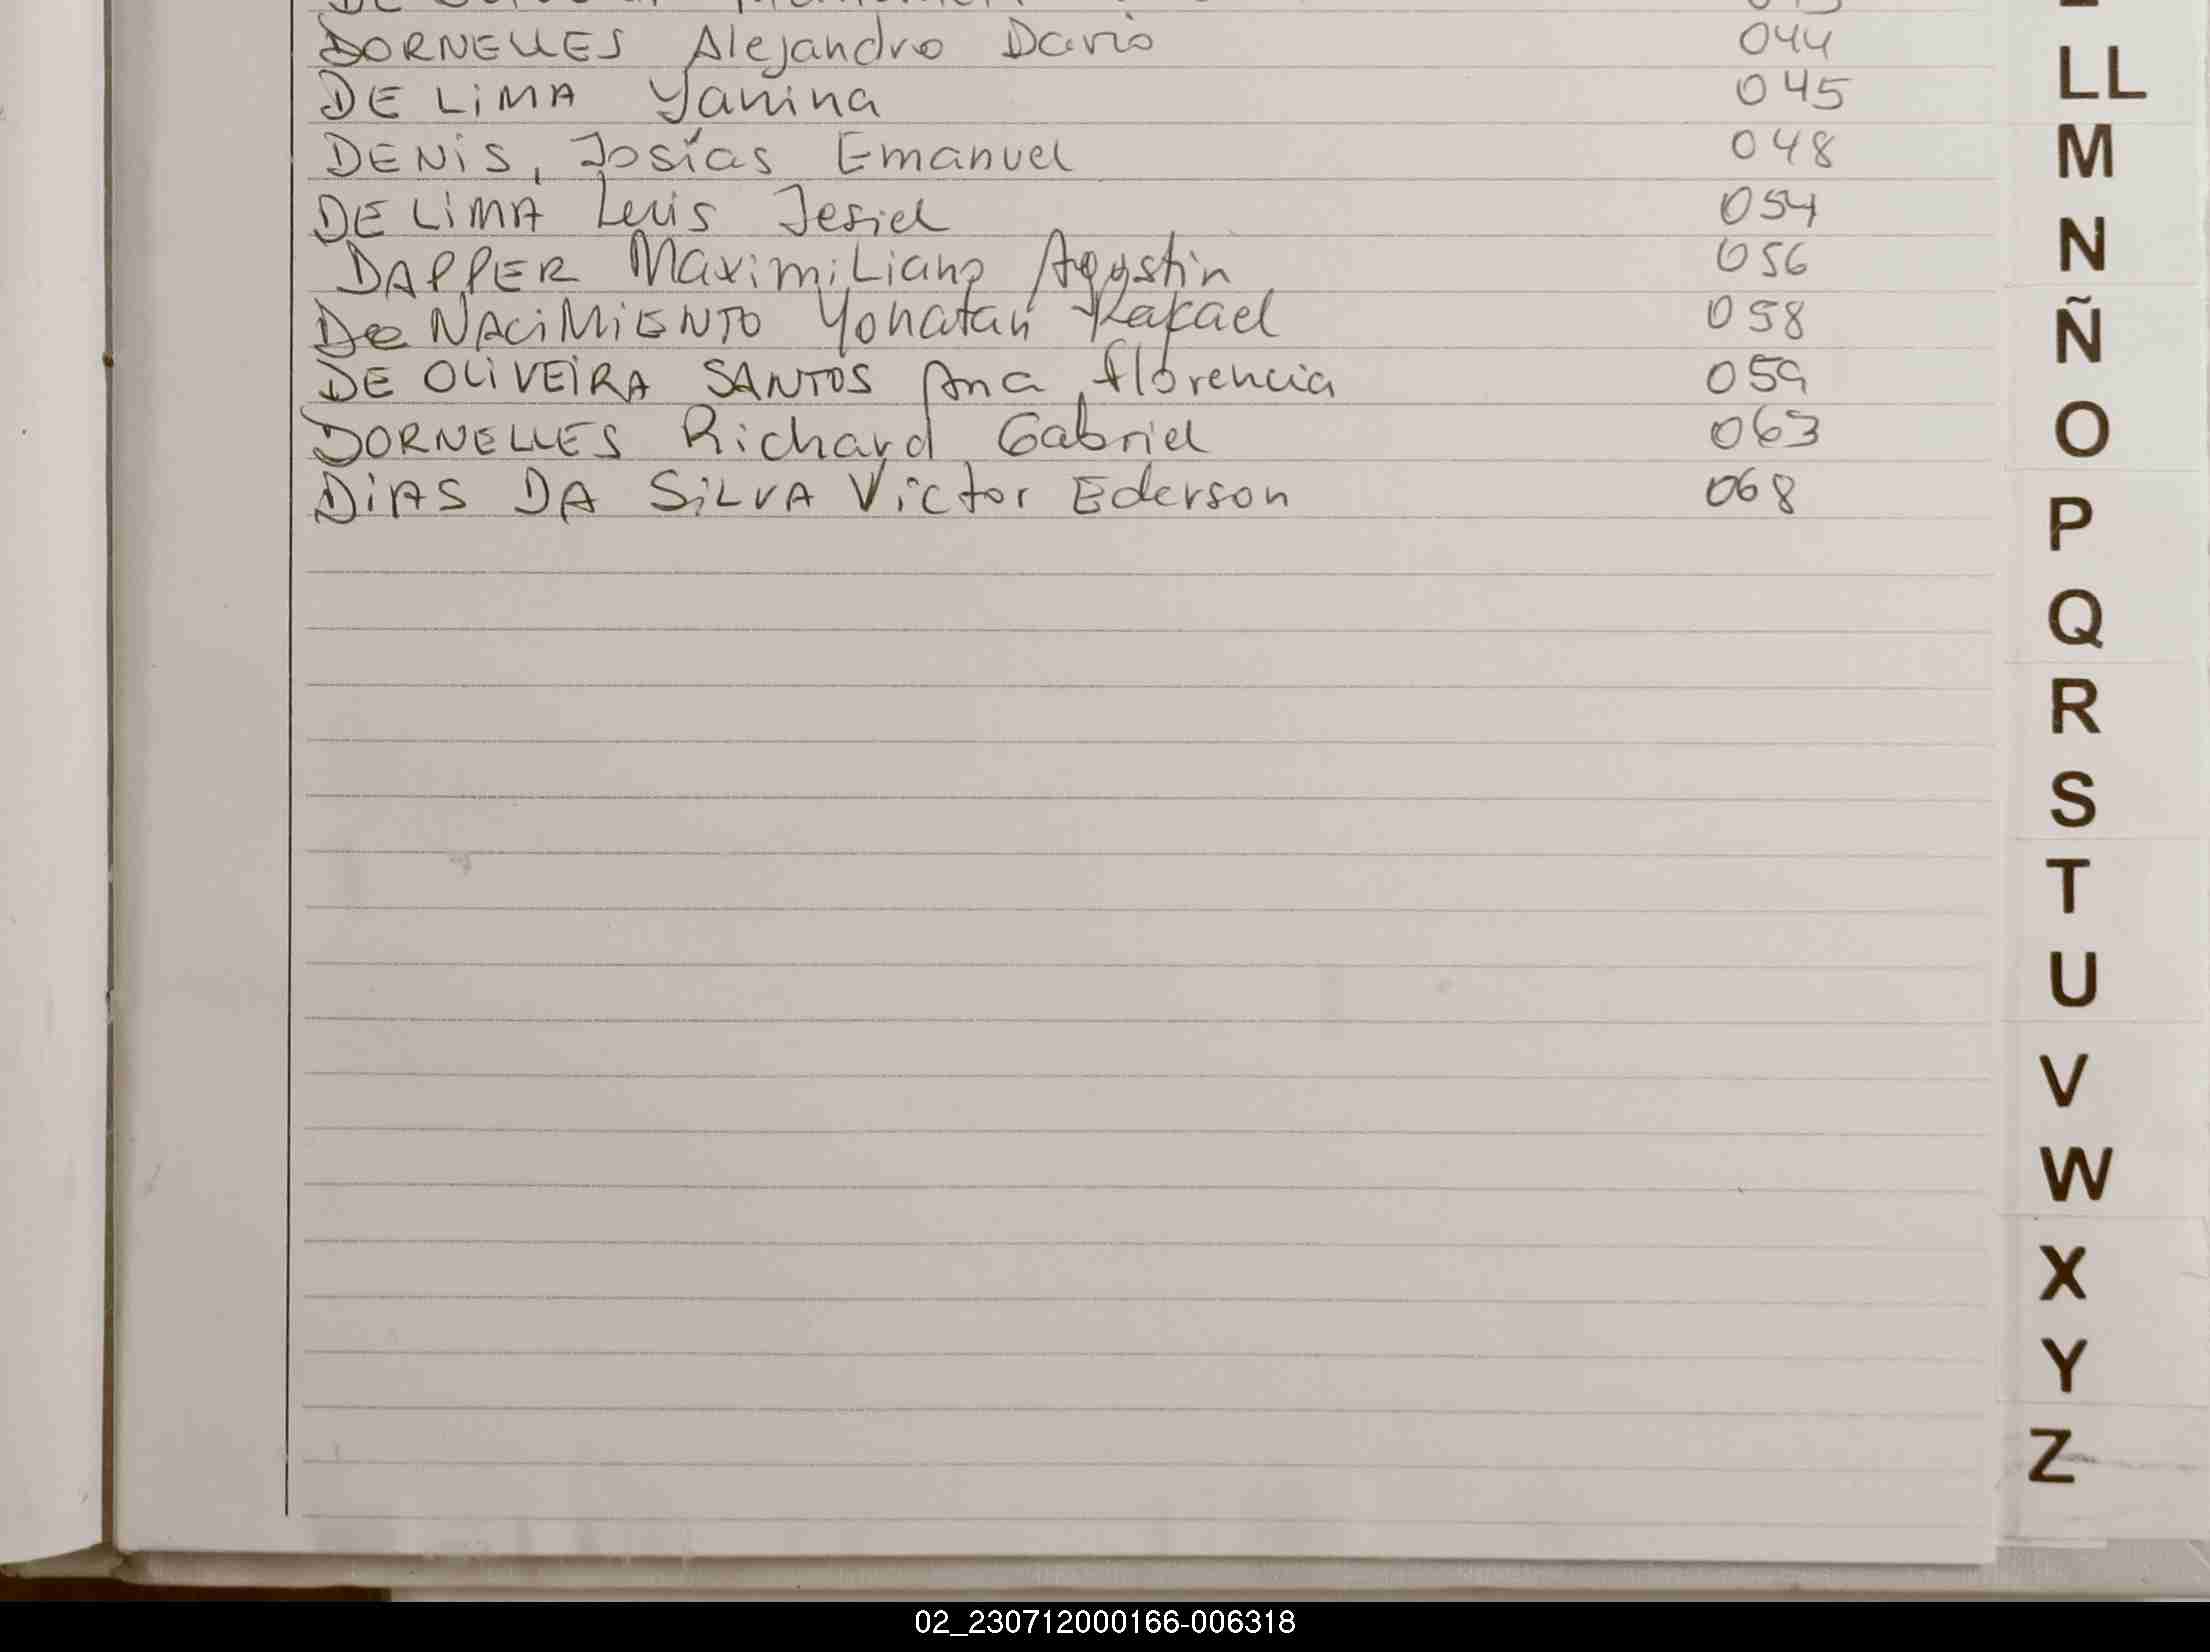 DORNELLES Alejandro Dario 044
DE LiMA Yanina 045
DENiS, Josías Emanuel 048
DE LiMA Luis Jesiel 054
DAPPER Maximiliano Agustin 056
De NACiMiENTO Yonatan Rafael 058
DE OLiVEiRA SANTOS Ana Florencia 059
DORNELLES Richard Gabriel 063
DiAS DA SiLVA Victor Ederson 068
LL
M
N
Ñ
O
P
Q
R
S
T
U
V
W
X
Y
Z
02_230712000166-006318